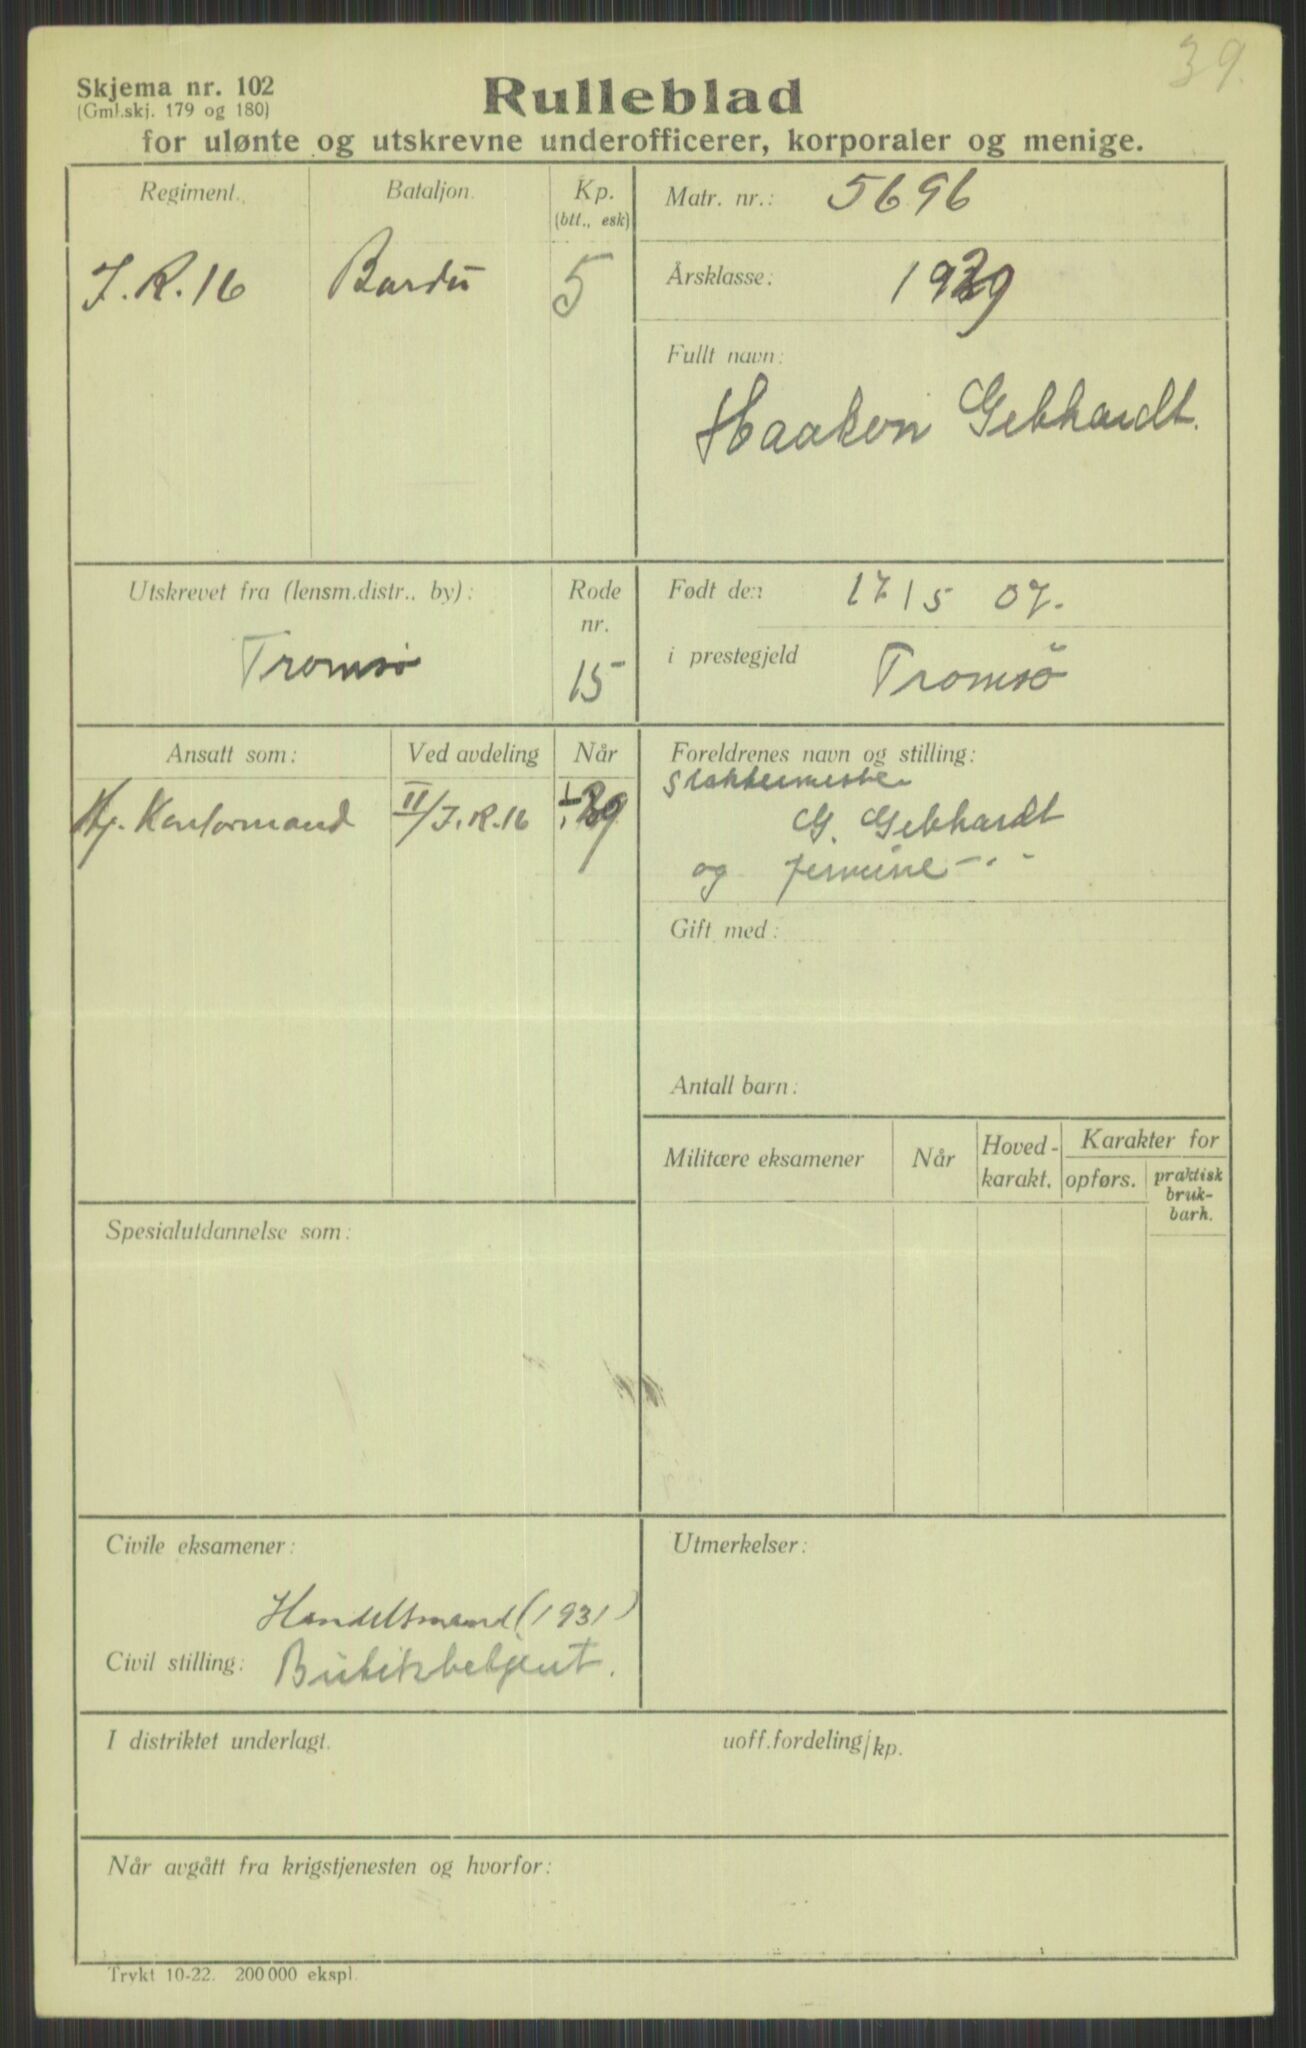 39.
Skjema nr. 102
(Gml.skj. 179 og 180)
Rulleblad
for ulønte og utskrevne underofficerer, korporaler og menige.
Regiment.
Bataljon.
Kp.
(btt., esk)
J.R.16
Bardu
5
Matr. nr.: 5696
Årsklasse: 1929
Fullt navn:
Haakon Gebhardt.
Utskrevet fra (lensm.distr., by):
Tromsø
Rode
nr.
15
Født den 17/5 07.
i prestegjeld Tromsö
Ansatt som:
Ved avdeling
Når
Hj. Kontormand
II/J.R.16
Foreldrenes navn og stilling:
Slaktermester
G. Gebhardt
og
Gift med:
Antall barn:
Militære eksamener
Når
Hoved-
karakt.
Karakter for
opførs.
praktisk
bruk-
barh.
Spesialutdannelse som:
Civile eksamener:
Handelsmand (1931)
Civil stilling: Butikbetjent.
Utmerkelser:
I distriktet underlagt.
uoff.fordeling/kp.
Når avgått fra krigstjenesten og hvorfor:
Trykt 10-22. 200 000 ekspl.